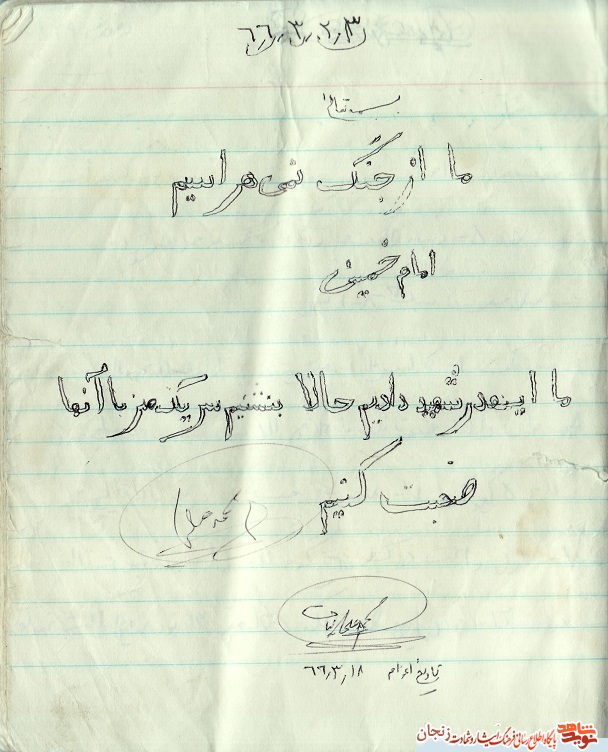 ۶۶٫۳٫۲٫۳
بسمه تعالی
ما از جنگ نمی هراسیم
امام خمینی
ما اینقدر شهید دادیم حالا بنشینیم سر یک میز با آنها
صحبت کنیم
محمد علی
تاریخ اعزام ۶۶٫۳٫۱۸
نوید شاهد
پایگاه اطلاع رسانی فرهنگ ایثار و شهادت زنجان